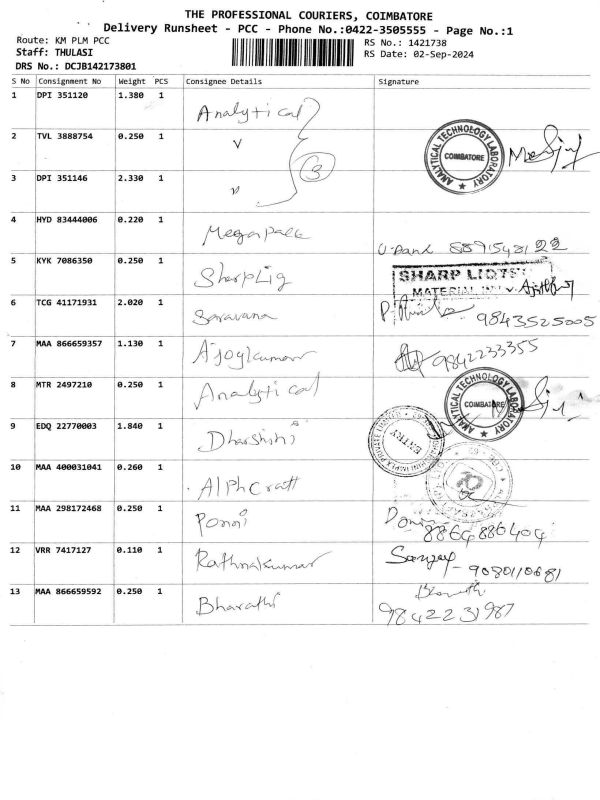 THE PROFESSIONAL COURIERS, COIMBATORE
Delivery Runsheet - PCC - Phone No.:0422-3505555 - Page No.:1
Route: KM PLM PCC
RS No.: 1421738
Staff: THULASI
RS Date: 02-Sep-2024
DRS No.: DCJB142173801
S No Consignment No Weight PCS Consignee Details Signature
1 DPI 351120 1.380 1 Analytical
2 TVL 3888754 0.250 1 3
ANALYTICAL TECHNOLOGY LABORATORY COIMBATORE
3 DPI 351146 2.330 1
4 HYD 83444006 0.220 1 Megapack 8891548122
5 KYK 7086350 0.250 1 Sharplig SHARP
MATERIAL
6 TCG 41171931 2.020 1 Saravana 9843525005
7 MAA 866659357 1.130 1 Ajoykumar 9842233355
8 MTR 2497210 0.250 1 Analytical ANALYTICAL TECHNOLOGY LABORATORY COIMBATORE
9 EDQ 22770003 1.840 1 Dharshini ENTRY
10 MAA 400031041 0.260 1 Alphcraft
11 MAA 298172468 0.250 1 Ponni 8864886404
12 VRR 7417127 0.110 1 Rathnakumar Sanjay - 9080110681
13 MAA 866659592 0.250 1 Bharathi Bharathi
9842231987